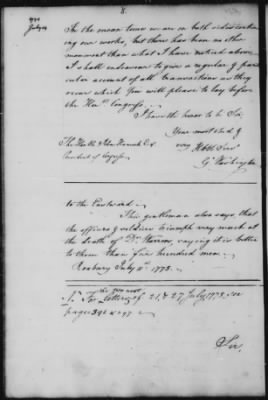 8.
1775
July 14
In the mean time we are on both sides continu
ing our works, but there has been no other
movement than what I have noticed above.
I shall endeavour to give a regular & parti
cular account of all transactions as they
occur which you will please to lay before
the Honl. Congress.
I have the honor to be Sir,
Your most obed. &
The Honble John Hancock Esqr. very Hble Servt
President of Congress. Go Washington
to the Eastward.
This gentleman also says that
the officers & soldiers triumph very much at
the death of Dr. Warren, saying it is better
to them than five hundred men.
Roxbury July 1775.
For Letters of 21, & 27 July 1775, see
pages 396 & 97
Sir,